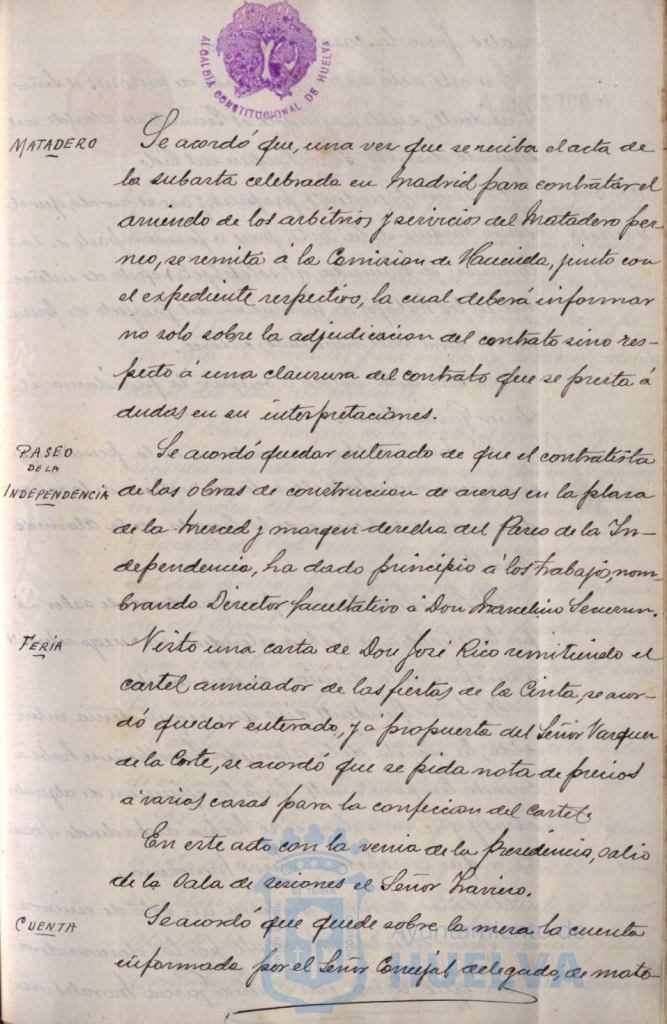 ALCALDÍA CONSTITUCIONAL DE HUELVA
MATADERO
Se acordó que, una vez que se reciba el acta de
la subasta celebrada en Madrid para contratar el
arriendo de los arbitrios y servicios del Matadero per-
neo, se remita á la Comision de Hacienda, junto con
el expediente respectivo, la cual deberá informar
no solo sobre la adjudicacion del contrato sino res-
pecto á una clausura del contrato que se presta á
dudas en su interpretaciones.
PASEO
DE LA
INDEPENDENCIA
Se acordó quedar enterado de que el contratista
de las obras de construccion de aceras en la plaza
de la Merced y margen derecha del Paseo de la In-
dependencia, ha dado principio á los trabajos, nom-
brando Director facultativo á Don Marcelino
FERIA
Visto una carta de Don José Rico remitiendo el
cartel anunciador de las fiestas de la Cinta, se acor-
dó quedar enterado, y á propuesta del Señor Vazquez
de la Corte, se acordó que se pida nota de precios
á varias casas para la confeccion del cartel.
En este acto con la venia de la presidencia, salio
de la Sala de sesiones el Señor
CUENTA
Se acordó que quede sobre la mesa la cuenta
informada por el Señor Concejal delegado, de mate-
Ayuntamiento de
HUELVA